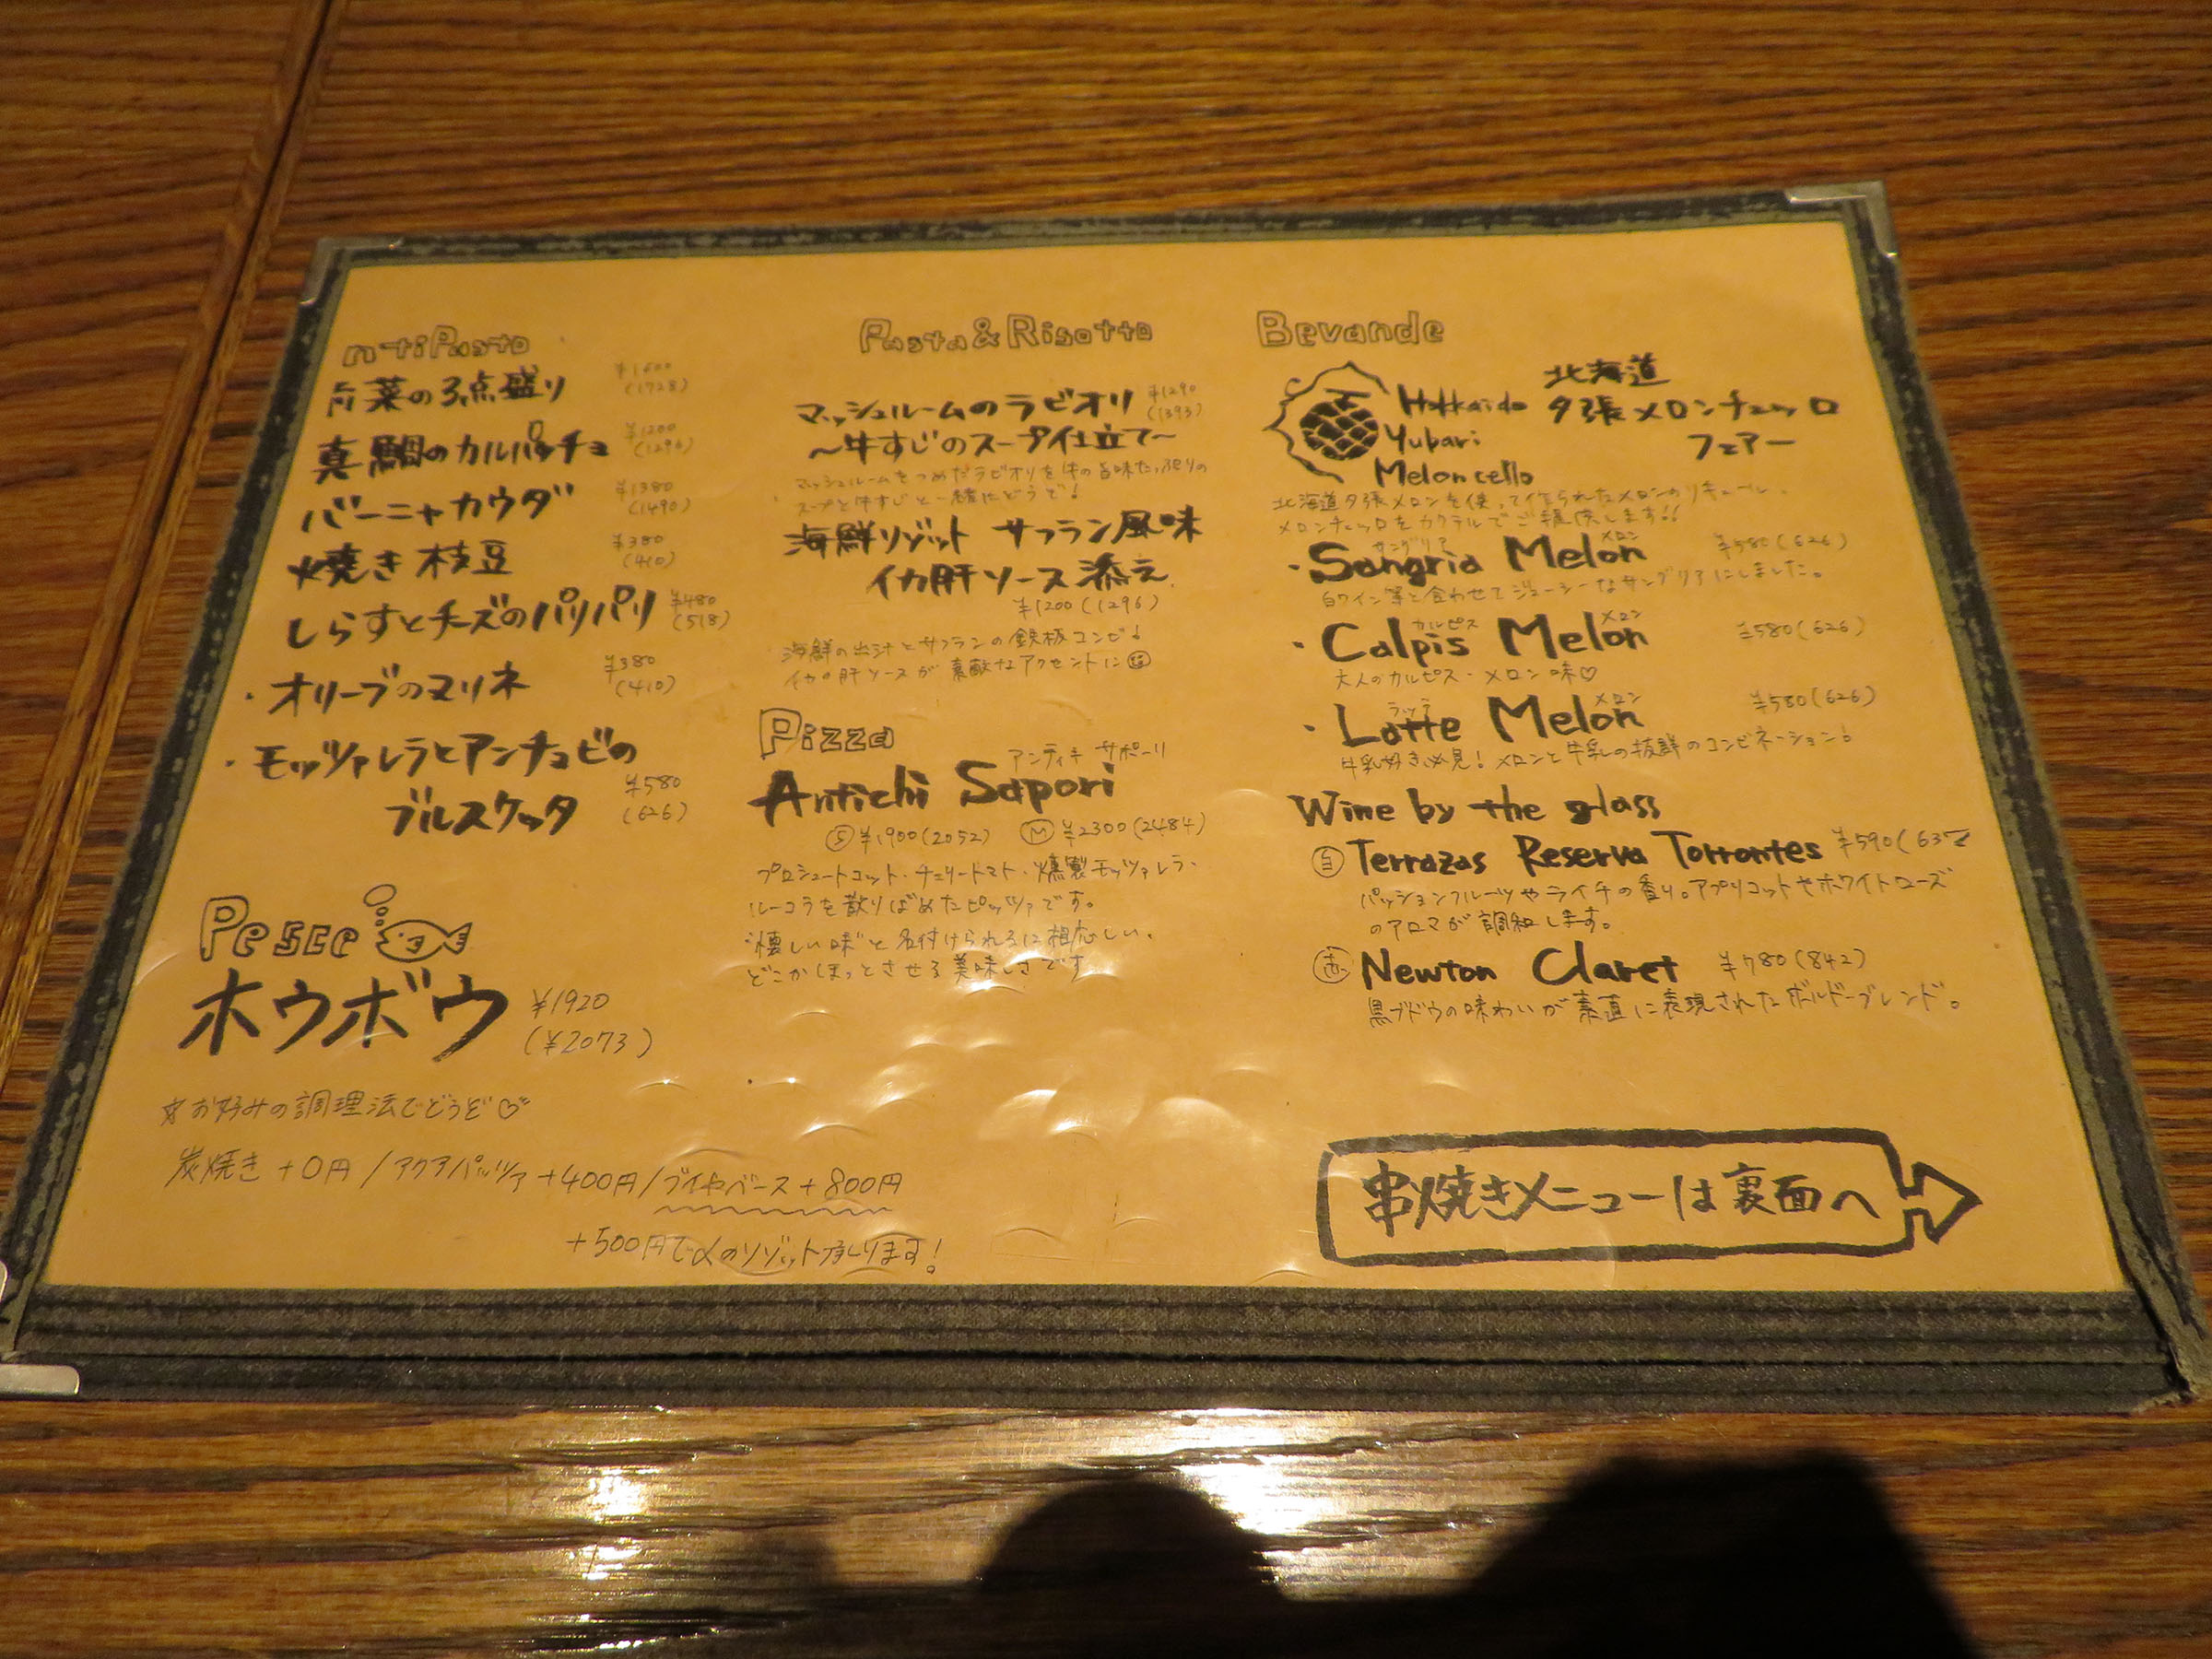 ntiPasto
前菜の3点盛り ¥1600
(1728)
真鯛のカルパッチョ ¥1200
(1296)
バーニャカウダ ¥1380
(1490)
焼き枝豆 ¥380
(410)
しらすとチーズのパリパリ ¥480
(518)
・オリーブのマリネ ¥380
(410)
・モッツァレラとアンチョビの
ブルスケッタ ¥580
(626)
Pesce
ホウボウ ¥1920
(¥2073)
☆お好みの調理法でどうぞ♡
炭焼き +0円 / アクアパッツァ +400円 / ブイヤベース +800円
+500円で〆のリゾット承ります!
Pasta & Risotto
マッシュルームのラビオリ ¥1290
(1393)
~牛すじのスープ仕立て~
マッシュルームをつめたラビオリを牛の旨味たっぷりの
スープと牛すじと一緒にどうぞ!
海鮮リゾット サフラン風味
イカ肝ソース添え
¥1200(1296)
海鮮の出汁とサフランの鉄板コンビ!
イカの肝ソースが素敵なアクセントに
Pizza
アンティキ サポーリ
Antichi Sapori
Ⓢ¥1900(2052) Ⓜ¥2300(2484)
プロシュートコット・チェリートマト・燻製モッツァレラ・
ルーコラを散りばめたピッツァです。
"懐しい味"と名付けられるに相応しい、
どこかほっとさせる美味しさです
Bevande
Hokkaido
Yubari
Meloncello
北海道
夕張メロンチェッロ
フェアー
北海道夕張メロンを使って作られたメロンのリキュール、
メロンチェッロをカクテルでご提供します!!
サングリア メロン
・Sangria Melon ¥580(626)
白ワイン等と合わせてジューシーなサングリアにしました。
カルピス メロン
・Calpis Melon ¥580(626)
大人のカルピス・メロン味♡
ラッテ メロン
・Latte Melon ¥580(626)
牛乳好き必見!メロンと牛乳の抜群のコンビネーション!
Wine by the glass
㊐ Terrazas Reserva Torrontes ¥590(637)
パッションフルーツやライチの香り。アプリコットやホワイトローズ
のアロマが調和します。
赤 Newton Claret ¥780(842)
黒ブドウの味わいが素直に表現されたボルドーブレンド。
串焼きメニューは裏面へ